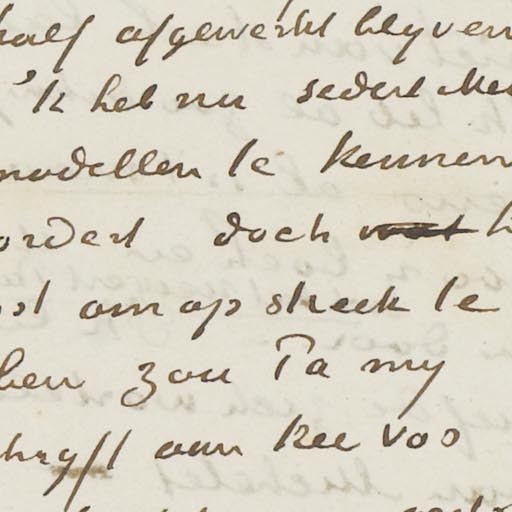 half afgewerkt blyven
'k heb nu sedert Mei
modellen te kennen
ordert doch wat
st om op streek te
ben zou Pa my
hryft aan Kee Vos